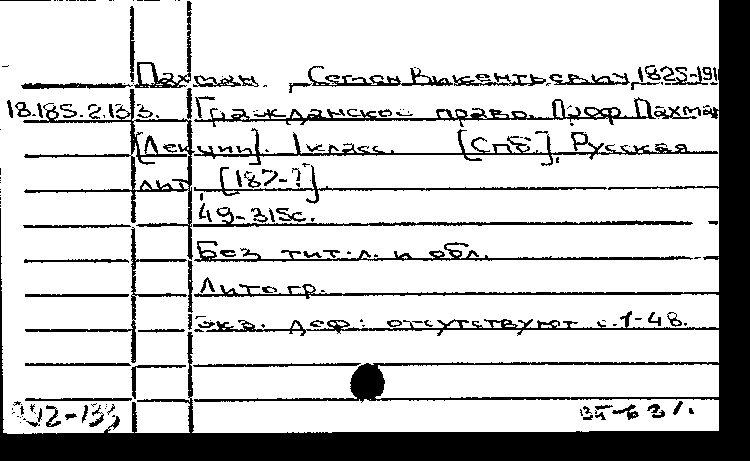 Пахман, Семен Викентьевич, 1825-191
18.185.2.133. Гражданское право. Проф. Пахман
[Лекции]. 1 класс. [Спб.], Русская
лит., [187-?].
49-315с.
Без тит. л. и обл.
Литогр.
Экз. деф.: отсутствуют с.1-48.
992-133